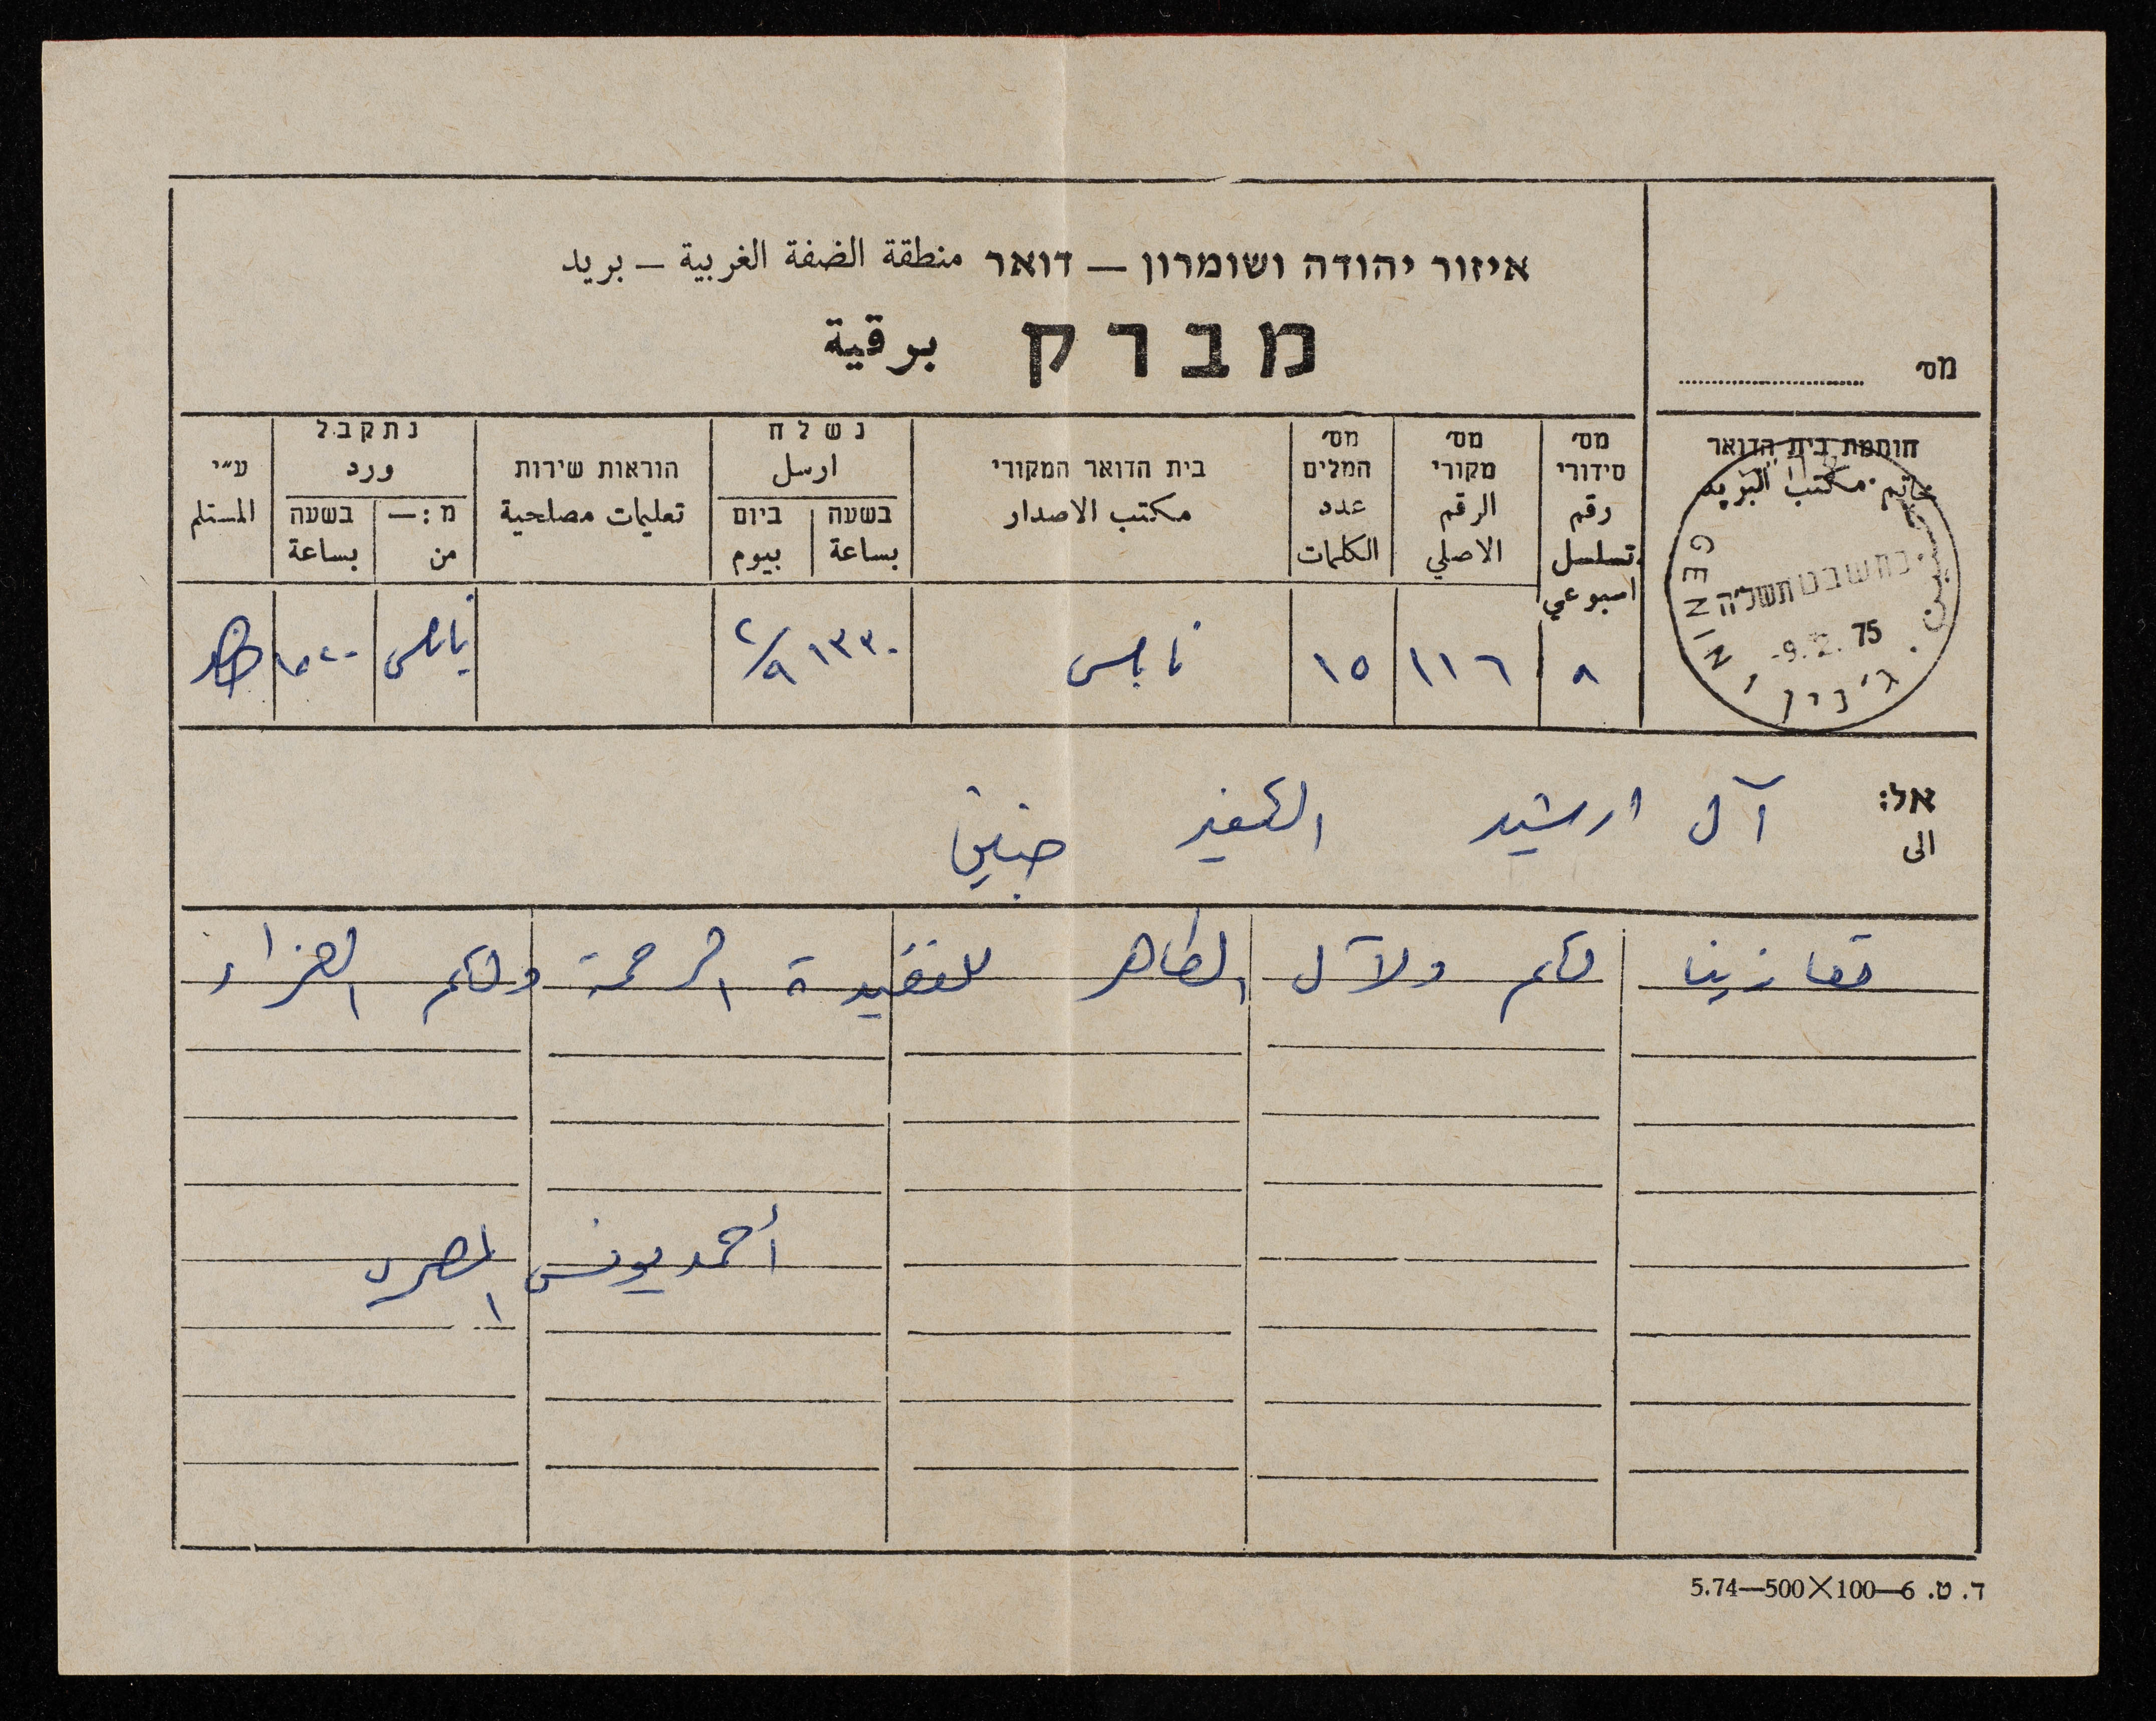 איזור יהודה ושומרון — דואר منطقة الضفة الغربية — بريد
מברק برقية
מס׳
חותמת בית הדואר
خاتم مكتب البريد
GENIN
ג׳נין
جنين
כח שבט תשל״ה
-9.2.75
מס׳ סידורי رقم تسلسل اسبوعي
מס׳ מקורי الرقم الاصلي
מס׳ המלים عدد الكلمات
בית הדואר המקורי مكتب الاصدار
נשלח ارسل
בשעה بساعة
ביום بيوم
הוראות שירות تعليمات مصلحية
נתקבל ورد
מ:— من
בשעה بساعة
ע״י المستلم
٨ ١١٦ ١٥ نابلس ١٣٣٠ ٩/٢ نابلس ١٥٢٠
אל: الى
آل ارشيد الكفير جنين
تعازينا لكم ولآل الطاهر للفقيدة الرحمة ولكم العزاء
أحمد يونس المصري
ד. ט. 6—100×500—5.74